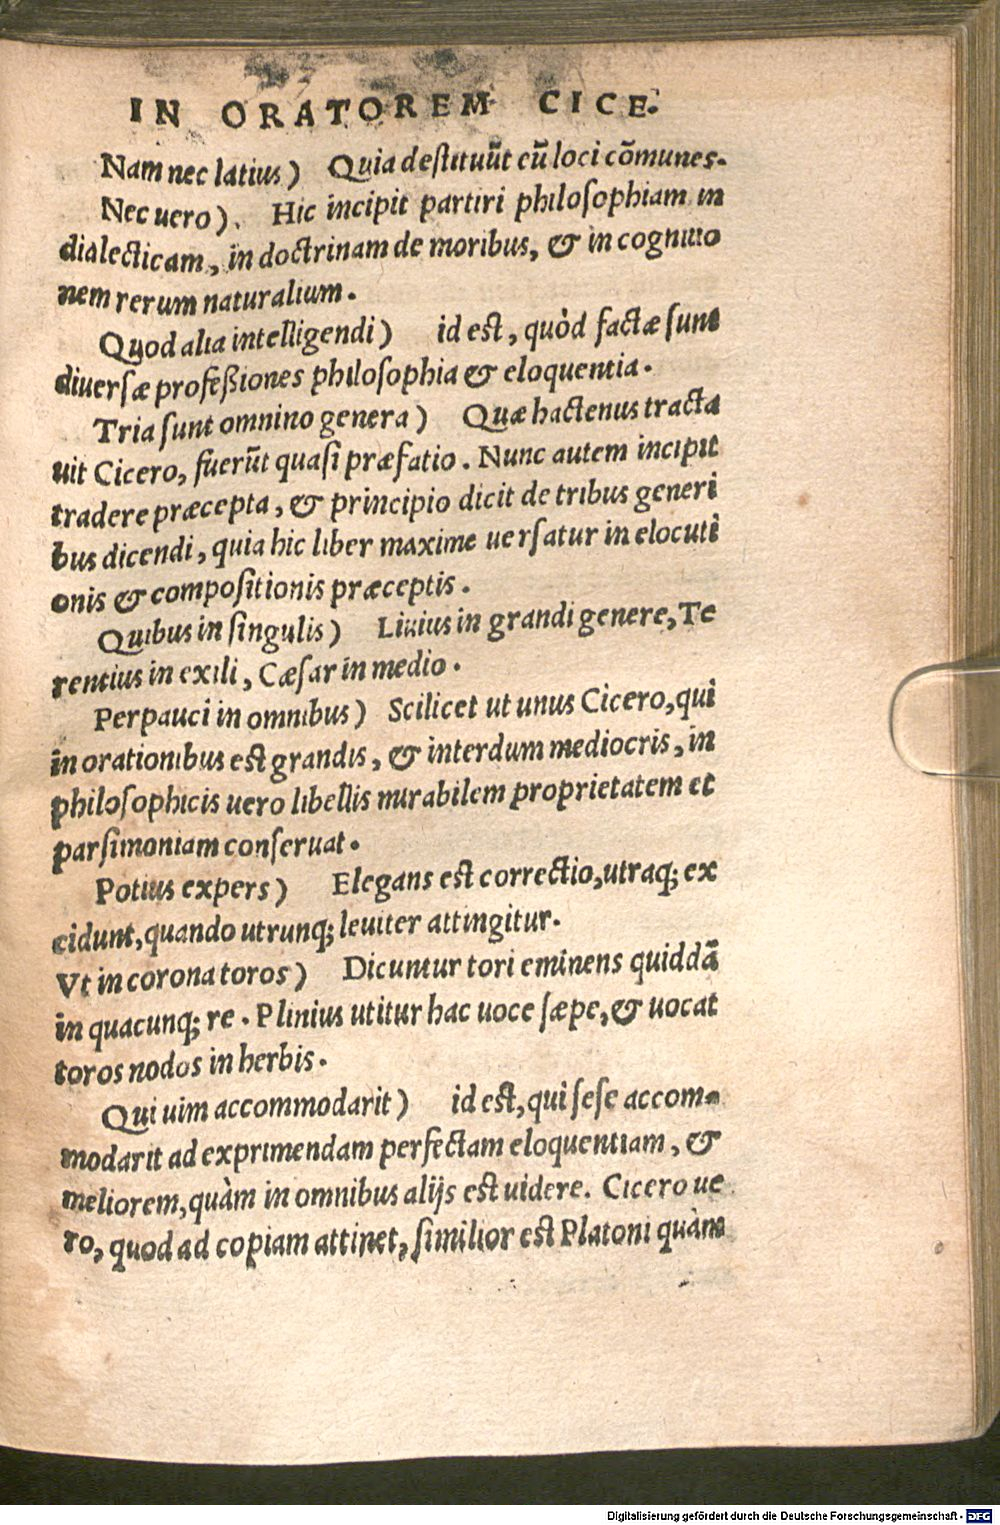 IN ORATOREM CICE.
Nam nec latius) Quia destituūt cū loci cōmunes.
Nec uero). Hic incipit partiri philosophiam in
dialecticam, in doctrinam de moribus, & in cognitio
nem rerum naturalium.
Quod alia intelligendi) id est, quòd factæ sunt
diuersæ professiones philosophia & eloquentia.
Tria sunt omnino genera) Quæ hactenus tracta
uit Cicero, fuerūt quasi præfatio. Nunc autem incipit
tradere præcepta, & principio dicit de tribus generi
bus dicendi, quia hic liber maxime uersatur in elocuti
onis & compositionis præceptis.
Quibus in singulis) Liuius in grandi genere, Te
rentius in exili, Cæsar in medio.
Perpauci in omnibus) Scilicet ut unus Cicero, qui
in orationibus est grandis, & interdum mediocris, in
philosophicis uero libellis mirabilem proprietatem et
parsimoniam conseruat.
Potius expers) Elegans est correctio, utraq; ex
cidunt, quando utrunq; leuiter attingitur.
Vt in corona toros) Dicuntur tori eminens quiddā
in quacunq; re. Plinius utitur hac uoce sæpe, & uocat
toros nodos in herbis.
Qui uim accommodarit) id est, qui sese accom-
modarit ad exprimendam perfectam eloquentiam, &
meliorem, quàm in omnibus alijs est uidere. Cicero ue
ro, quod ad copiam attinet, similior est Platoni quàm
Digitalisierung gefördert durch die Deutsche Forschungsgemeinschaft - DFG